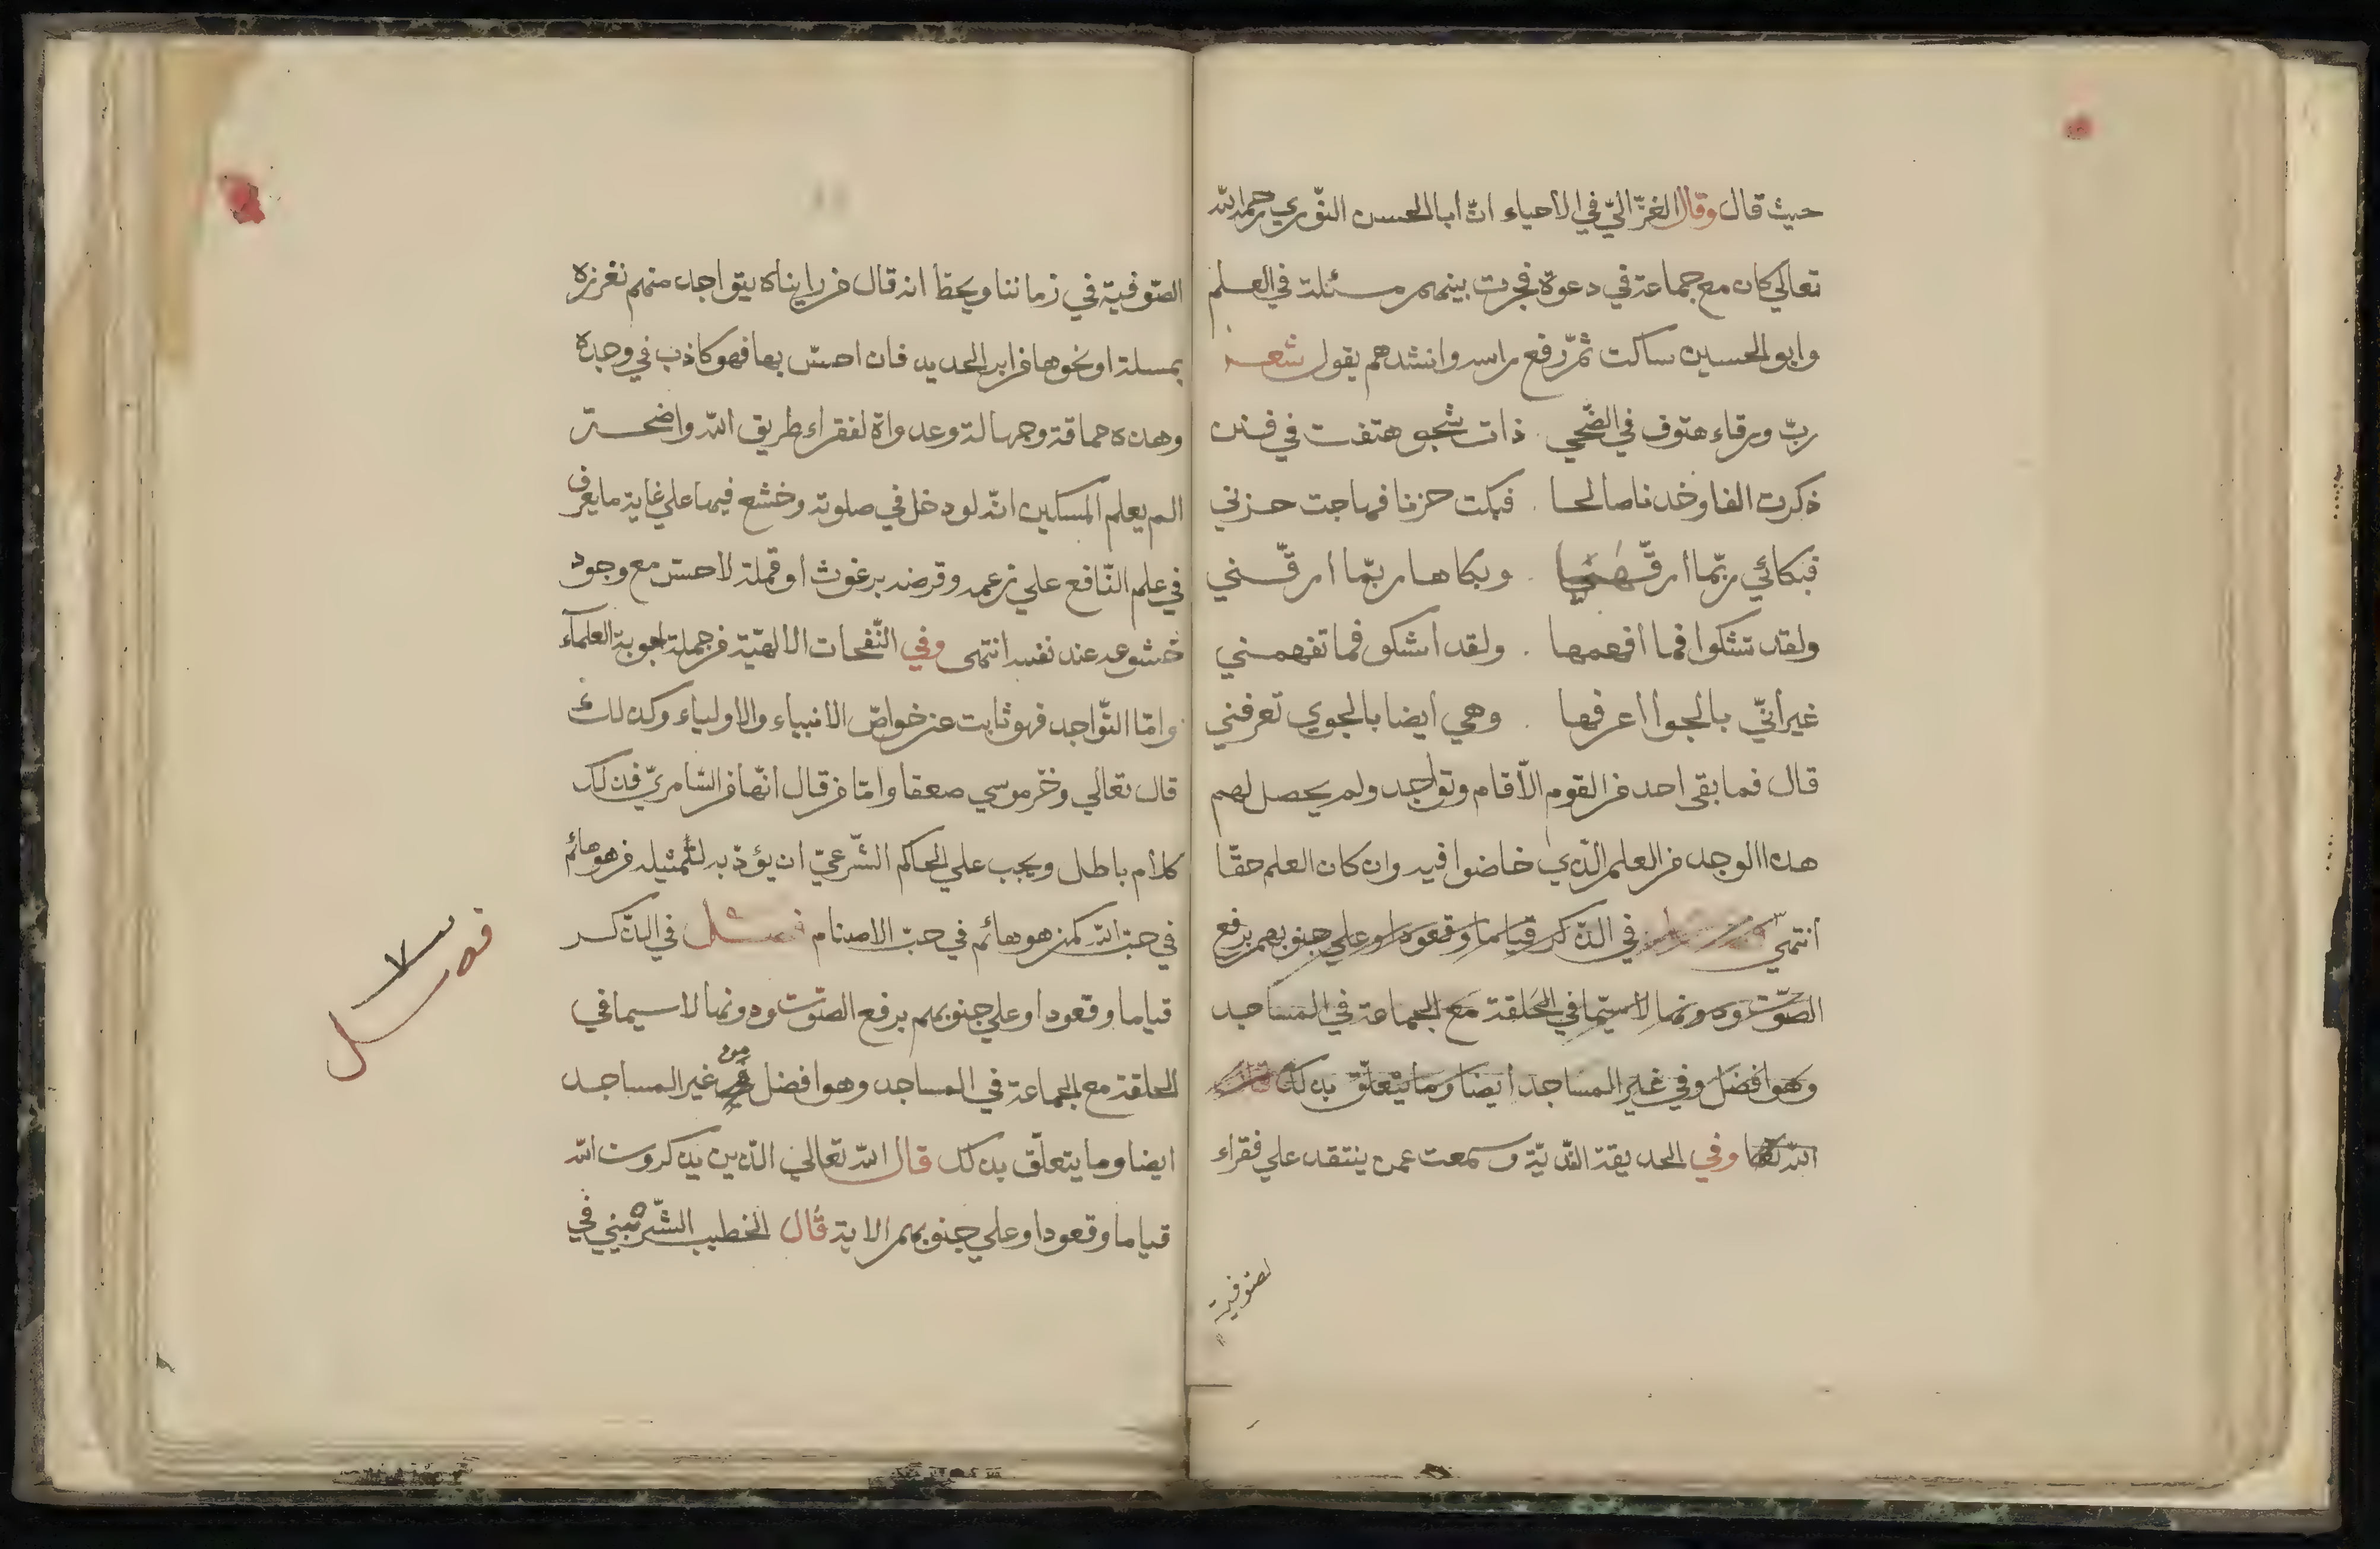 حيث قال وقال الغزّاليّ في الاحياء انّ ابا الحسن النّوري رحمه الله
تعالي كان مع جماعة في دعوة فجرت بينهم مسئلة في العلم
وابو الحسين ساكت ثمّ رفع راسه وانشدهم يقول شعر
ربّ ورقاء هتوف في الضّحي . ذات شجو هتفت في فنن
ذكرت الفا وخدنا صالحا . فبكت حزنا فهاجت حزني
فبكائي ربّما ارّقها . وبكاها ربّما ارّقني
ولقد تشكوا فما افهمها . ولقد اشكو فما تفهمني
غير انّي بالجوا اعرفها . وهي ايضا بالجوي تعرفني
قال فما بقي احد من القوم الّا قام وتواجد ولم يحصل لهم
هذا الوجد من العلم الّذي خاضوا فيه وان كان العلم حقّا
انتهي في الذّكر قياما وقعودا وعلي جنوبهم برفع
الصّوت ودونها لا سيّما في الحلقة مع الجماعة في المساجد
وهو افضل وفي غير المساجد ايضا وما يتعلّق بذلك قال
الله تعا وفي الحديقة النّديّة وسمعت عمن ينتقد علي فقراء
لصّوفية
الصّوفية في زماننا ويحط انه قال من رايناه يتواجد منهم نغرزه
بمسلة او نحوها من ابر الحديد فان احسّ بها فهو كاذب في وجده
وهذه حماقة وجهالة وعداوة لفقراء طريق الله واضحة
الم يعلم المسكين انّه لو دخل في صلوته وخشع فيها علي غاية ما يعرف
في علم النّافع علي زعمه وقرضه برغوث او قملة لاحسّ مع وجود
خشوعه عند نفسه انتهى وفي النّفحات الالهيّة من جملة اجوبة العلماء
وامّا التّواجد فهو ثابت عن خواصّ الانبياء والاولياء وكذلك
قال تعالي وخرّ موسي صعقا وامّا من قال انّها من السّامريّ فذلك
كلام باطل ويجب علي الحاكم الشّرعيّ ان يؤذبه لتمثيله من هو هائم
في حبّ الله كمن هو هائم في حبّ الاصنام فصل في الذّكر
قياما وقعودا وعلي جنوبهم برفع الصّوت ودونها لا سيما في
الحلقة مع الجماعة في المساجد وهو افضل من غير المساجد
ايضا وما يتعلّق بذلك قال الله تعالي الّذين يذكرون الله
قياما وقعودا وعلي جنوبهم الاية قال الخطيب الشّربيني في
فصل